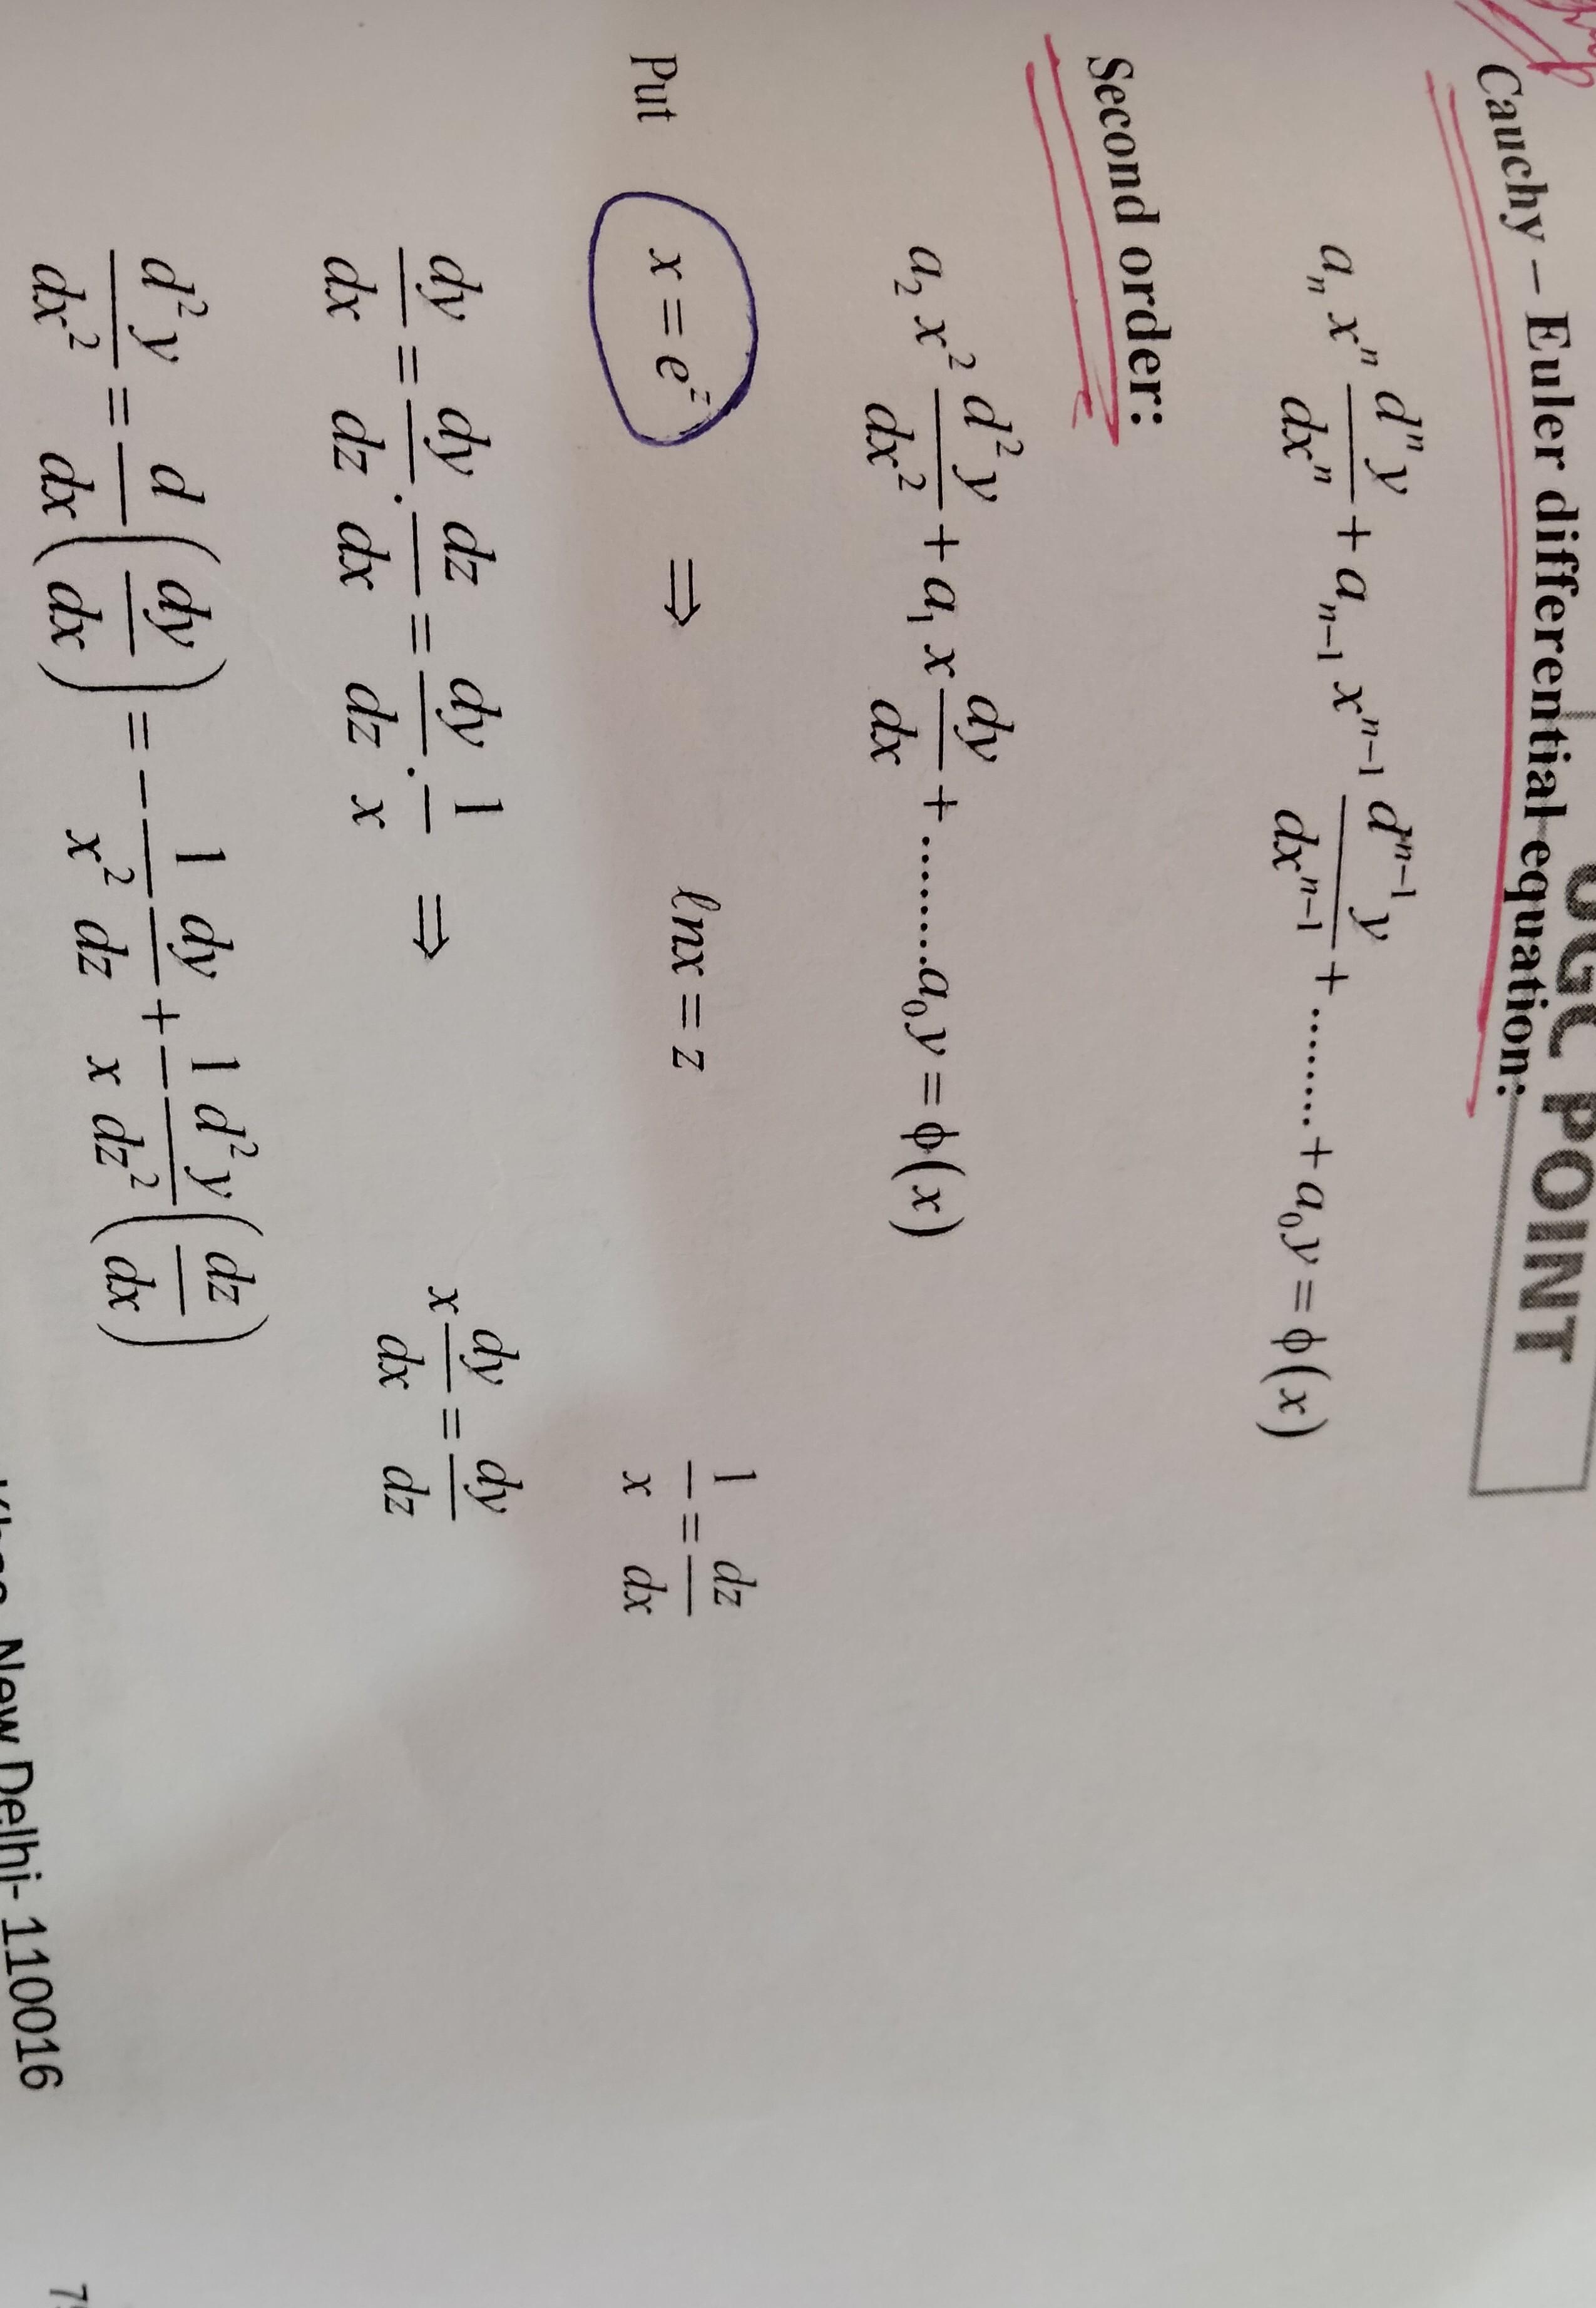 UGC POINT
Cauchy – Euler differential equation:
aₙ xⁿ dⁿy/dxⁿ + aₙ₋₁ xⁿ⁻¹ dⁿ⁻¹y/dxⁿ⁻¹ + ......... + a₀y = ϕ(x)
Second order:
a₂ x² d²y/dx² + a₁ x dy/dx + .........a₀y = ϕ(x)
Put x = eᶻ ⇒ ℓnx = z 1/x = dz/dx
dy/dx = dy/dz · dz/dx = dy/dz · 1/x ⇒ x dy/dx = dy/dz
d²y/dx² = d/dx (dy/dx) = − 1/x² dy/dz + 1/x d²y/dz² (dz/dx)
New Delhi- 110016